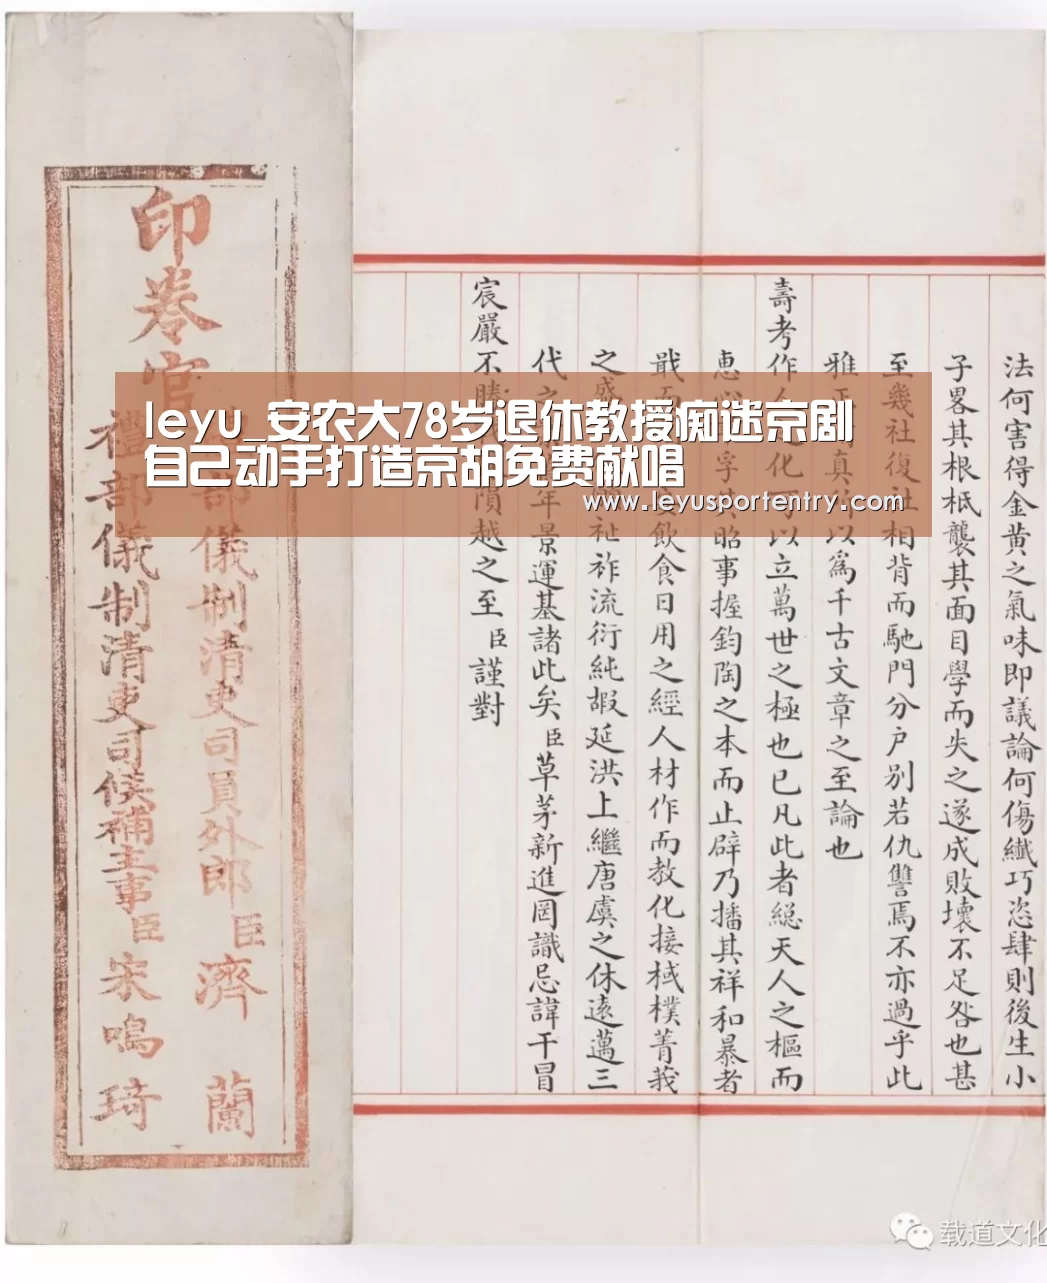 法何害得金黄之氣味即議論何傷纖巧恣肆則後生小
子畧其根柢襲其面目學而失之遂成敗壞不足咎也甚
至幾社復社相背而馳門分户別若仇讐焉不亦過乎此
雅正真以為千古文章之至論也
壽考作人化以立萬世之極也已凡此者總天人之樞而
惠心孚昭事握鈞陶之本而止辟乃播其祥和暴者
戢飲食日用之經人材作而教化接棫樸菁莪
之盛祉祚流衍純嘏延洪上繼唐虞之休遠邁三
代年景運基諸此矣臣草茅新進罔識忌諱干冒
宸嚴不勝隕越之至臣謹對
印卷官
部儀制清吏司員外郎臣濟蘭
禮部儀制清吏司候補主事臣宋鳴琦
leyu_安农大78岁退休教授痴迷京剧
自己动手打造京胡免费献唱
www.leyusportentry.com
载道文化